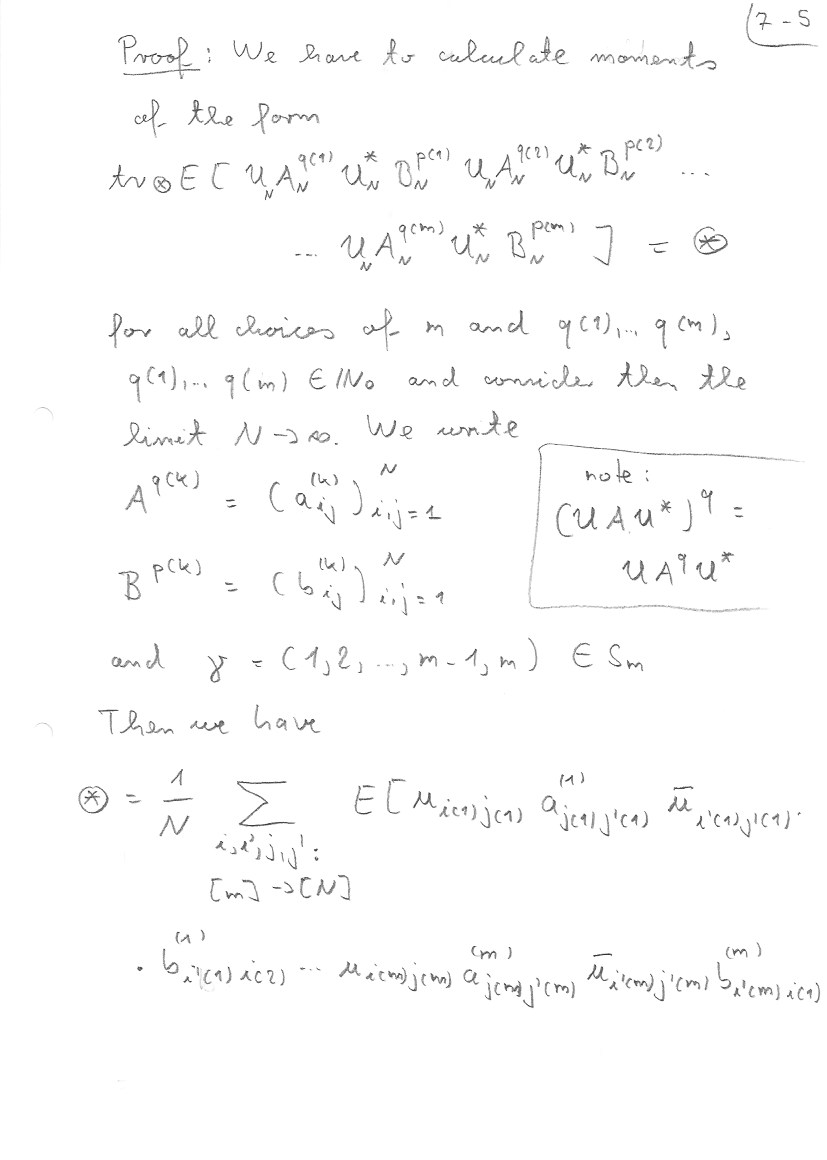 7-5
Proof: We have to calculate moments
of the form
tr⊗E[ U_N A_N^{q(1)} U_N^* B_N^{p(1)} U_N A_N^{q(2)} U_N^* B_N^{p(2)} ...
... U_N A_N^{q(m)} U_N^* B_N^{p(m)} ] = ⊛
for all choices of m and q(1),.. q(m),
q(1),.. q(m) ∈ ℕ₀ and consider then the
limit N → ∞. We write
A^{q(k)} = (a_{ij}^{(k)})_{i,j=1}^N
note:
(UAU*)^q =
UA^qU*
B^{p(k)} = (b_{ij}^{(k)})_{i,j=1}^N
and γ = (1,2,...,m-1,m) ∈ S_m
Then we have
⊛ = 1/N Σ_{i,i',j,j': [m]→[N]} E[ u_{i(1)j(1)} a_{j(1)j'(1)}^{(1)} ū_{i'(1)j'(1)} ·
· b_{i'(1)i(2)}^{(1)} ... u_{i(m)j(m)} a_{j(m)j'(m)}^{(m)} ū_{i'(m)j'(m)} b_{i'(m)i(1)}^{(m)}